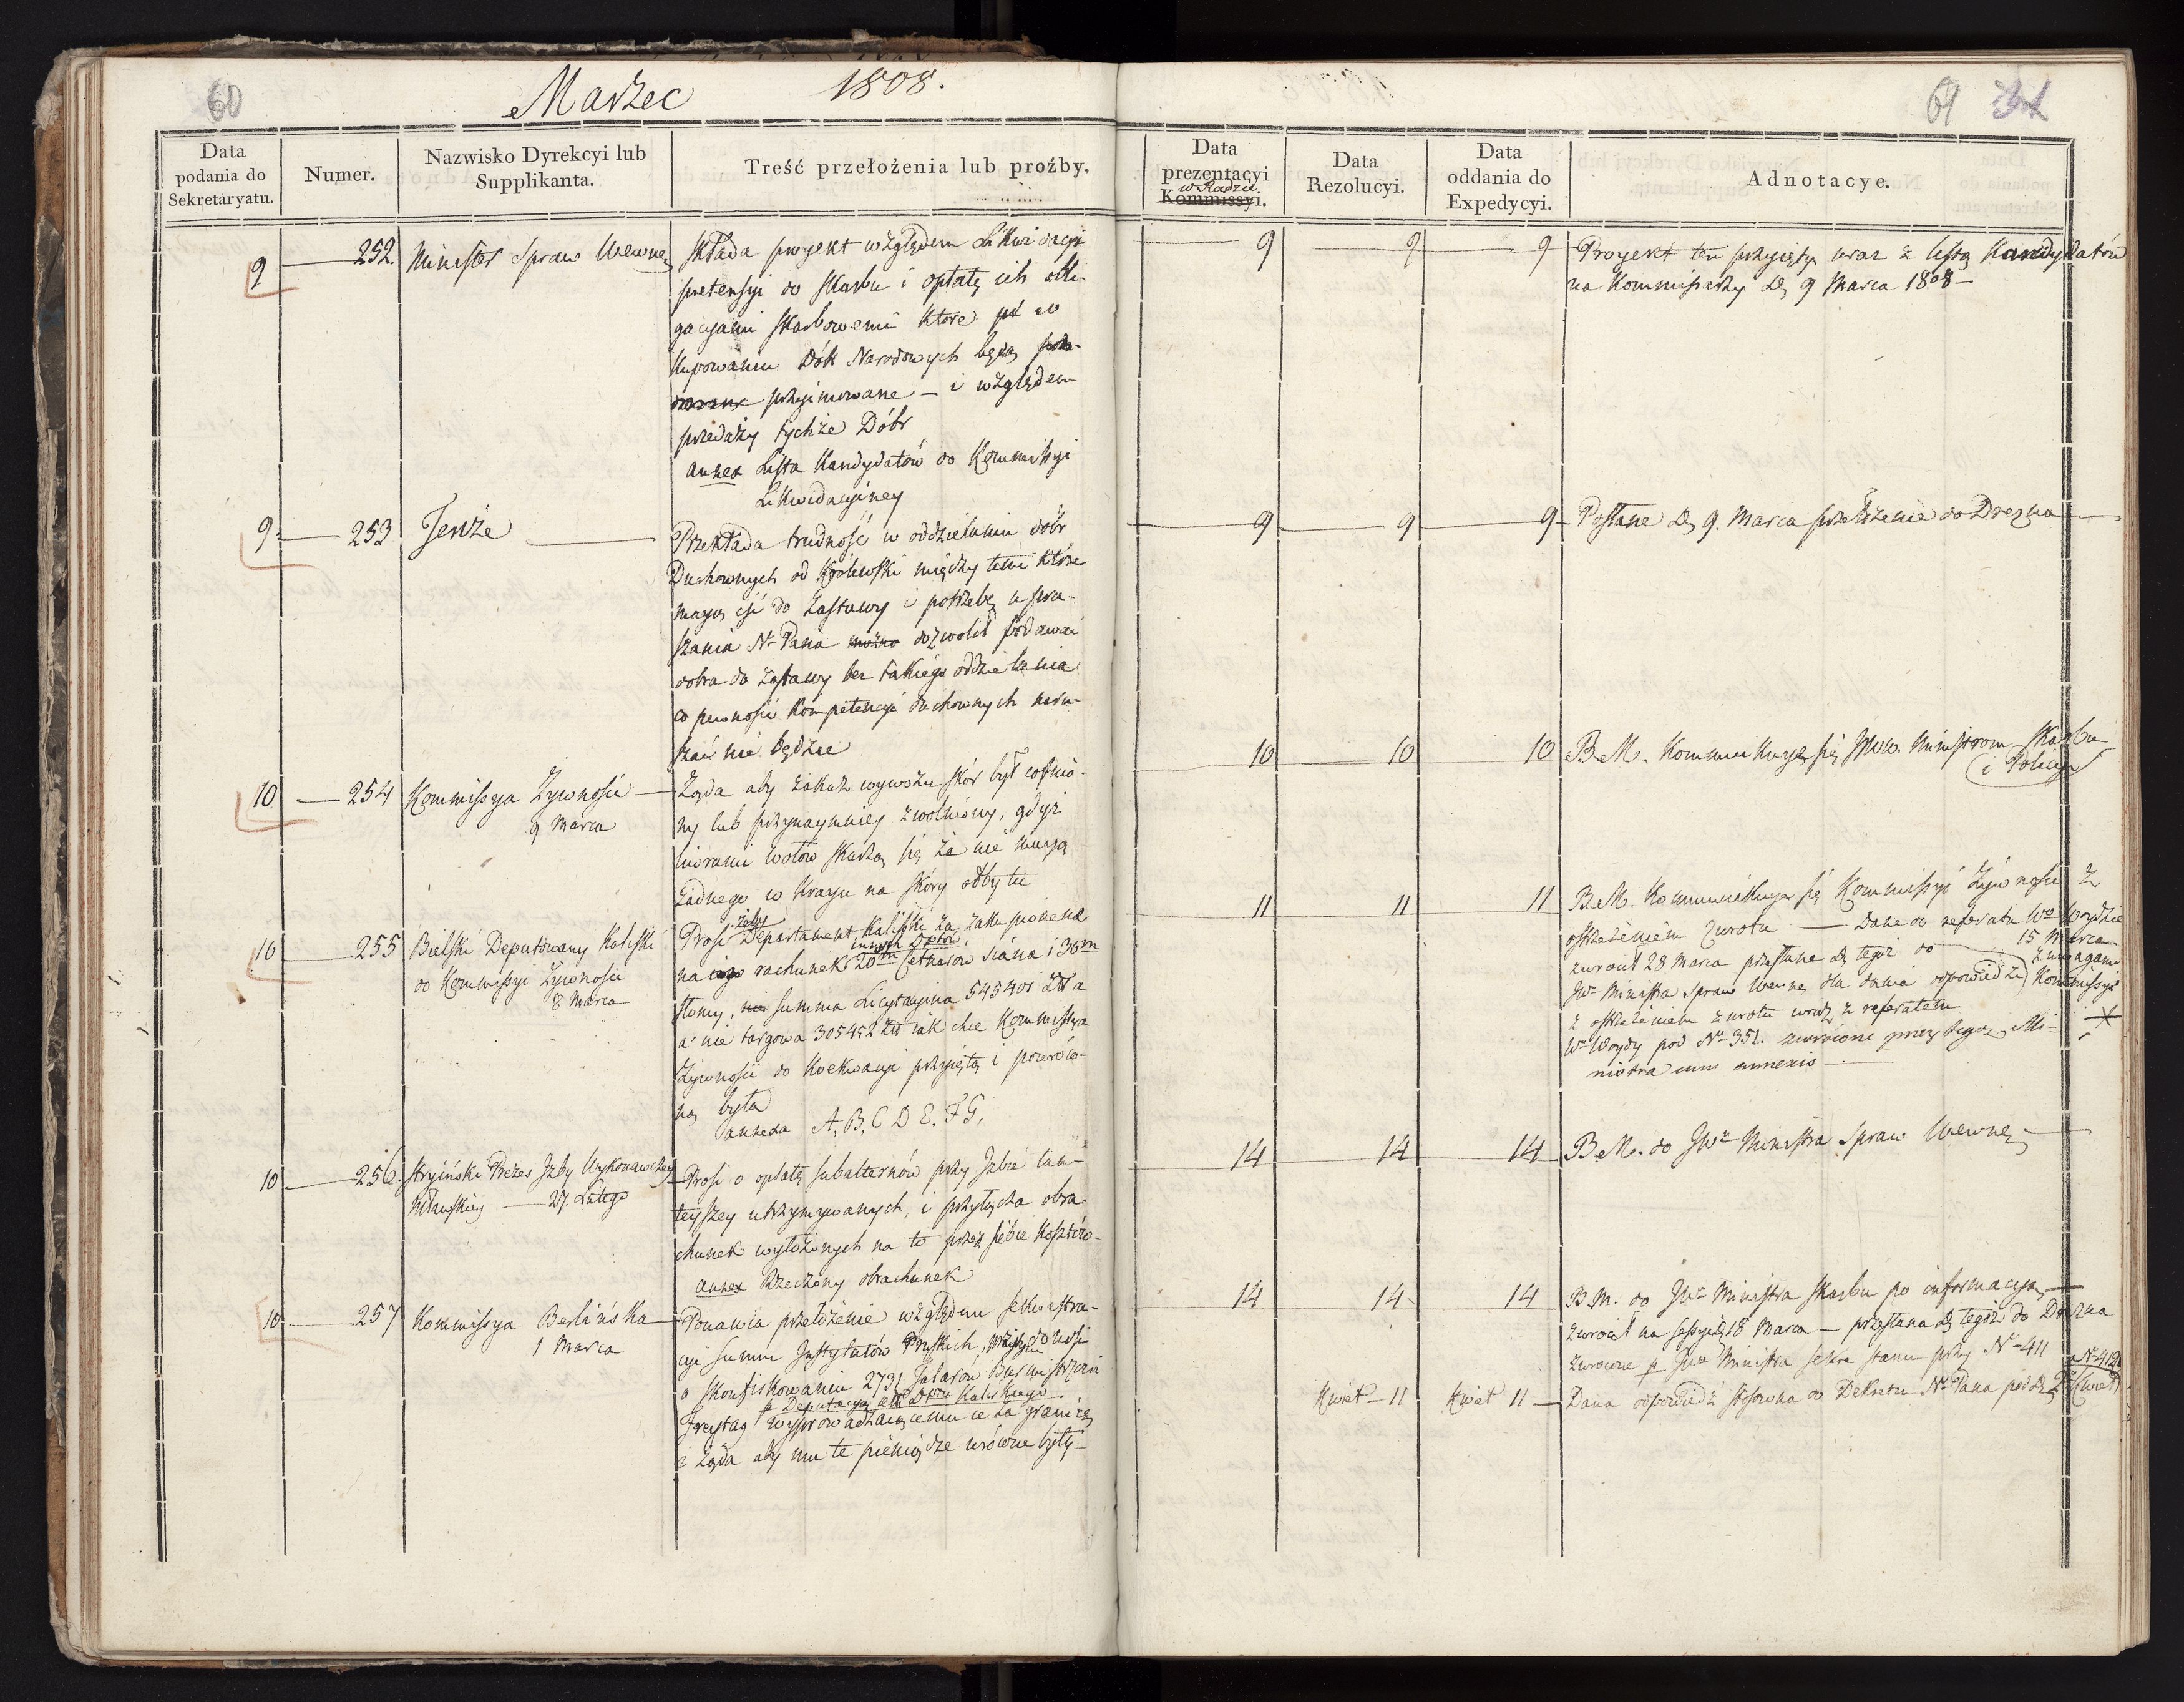 60
Marzec 1808.
61 31
Data podania do Sekretaryatu.
Numer.
Nazwisko Dyrekcyi lub Supplikanta.
Treść przełożenia lub proźby.
Data prezentacyi w Radzie. Kommissyi.
Data Rezolucyi.
Data oddania do Expedycyi.
Adnotacye.
9 252. Minister Spraw Wewnę
Składa proyekt względem Likwidacyi
pretensyi do Skarbu i opłatę ich obli-
gacyami Skarbowemi które w
kupowaniu Dóbr Narodowych będą
przyjmowane – i względem
przedaży tychże Dóbr
annex Lista Kandydatów do Kommissyi
Likwidacyiney
9 9 9
Proyekt ten przyięty wraz z listą Kandydatów
na Kommissarzy D. 9 Marca 1808 –
9 253 Tenże
Przekłada trudność w oddzieleniu dóbr
Duchownych od Królewski między temi które
mayą iść do Zastawy i potrzebę upra-
szania Nº Pana dozwolił podawać
dobra do zastawy bez takiego oddzielenia
co pewności kompetencyi duchownych naru-
szać nie będzie
9 9 9
Posłane D. 9. Marca przełożenie do Drezna
10 254 Kommissya Żywności
9 Marca
Żąda aby zakaz wywozu skór był cofnio-
ny lub przynaymniey zwolniony, gdyż
liweranci wołów skarżą się że nie mayą
żadnego w kraju na skóry odbytu
10 10 10
B.M. kommunikuye się JWW. Ministrom Skarbu
i Policyi
10 255 Bielski Deputowany Kaliski
do Kommissyi Żywności
8 Marca
Prosi żeby Departament Kaliski za zakupione
na rachunek innych Dptów 20m Cetnarów siana i 30m
słomy, summa Licytacyina 545401 Złł a
a nie targowa 305452 Złł iak chce Kommissya
Żywności do Koekwacyi przyiętą i powróco-
ną była
annexa A, B, C D E. F G,
11 11 11
B.M. Kommunikuye się Kommissyi Żywności z
ostrzeżeniem zwrotu — Dane do referatu Wº Woydzie
15 Marca
zwrócił 28 Marca przesłane D. tegoż do z uwagami
JWº Ministra Spraw Wewnę dla dania odpowiedzi Kommissyi
z ostrzeżeniem zwrotu wraz z referatem
Wº Woydy pod Nº 351. zwrócone przez tegoż Mi-
nistra cum annexis
10 256. Stryiński Prezes Izby Wykonawczey
Płockiey — 27. Lutego
Prosi o opłatę subalternów przy Izbie tam-
teyszey utrzymywanych, i przyłącza obra-
chunek wyłożonych na to przez siebie kosztów-
annex Rzeczony obrachunek
14 14 14
B.M. do JWº Ministra Spraw Wewnę
10 257 Kommissya Berlińska
1 Marca
Ponawia przełożenie względem sekwestra-
cyi summ Instytutów Pruskich, donosi
o skonfiskowaniu 2791 Talarów Burmistrzowi
p Deputacyą Dptu Kaliskiego
Freytag wyprowadzaiącemu ie za granicę
i żąda aby mu te pieniądze wrócone były –
14 14 14
B.M. do JWº Ministra Skarbu po informacyą
zwrócił na sessyi 18 Marca – przesłana D. tegoż do Drezna
zwrócone p JWº Ministra Sekre stanu przy Nº 411 Nº 412
Kwiet – 11 Kwiet 11
Dana odpowiedź stosowna do Dekretu Nº Pana